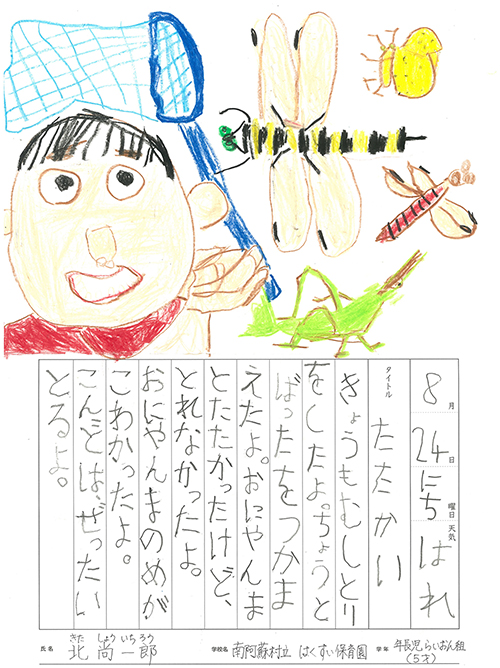 8月24日にち曜日 天気 はれ
タイトル たたかい
きょうもむしとり
をしたよ。ちょうと
ばったをつかま
えたよ。おにやんま
とたたかったけど、
とれなかったよ。
おにやんまのめが
こわかったよ。
こんどは、ぜったい
とるよ。
きた しょういちろう
氏名 北 尚一郎 学校名 南阿蘇村立 はくすい保育園 学年 年長児 らいおん組
(5才)